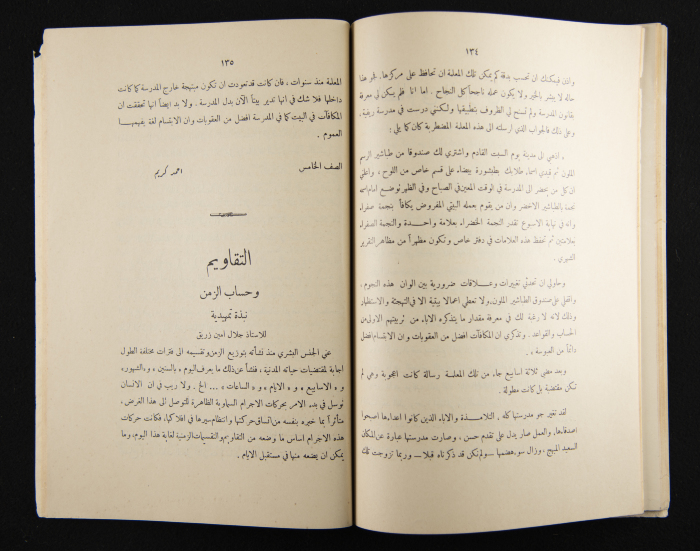 ١٣٤
واذن فيمكنك ان تحسب بدقة كم يمكن تلك المعلمة ان تحافظ على مركزها. فمر هذا
حاله لا يبشر بالخير ولا يكون عمله ناجحاً كل النجاح. اما انا فلم يمكن لي معرفة
بقانون المدرسة ولم تسنح لي الظروف بتطبيقها ولكنني درست في مدرسة ريفية.
وعلى ذلك فالجواب الذي ارسلته الى هذه المعلمة المضطربة كان كما يلي :
« اذهبي الى مدينة يوم السبت القادم واشتري لك صندوقا من طباشير الرسم
الملون ثم قيدي اسماء طلابك بطبشورة بيضاء على قسم خاص من اللوح ، واعلني
ان كل من يحضر الى المدرسة في الوقت المعين في الصباح وفي الظهر توضع امام اسمه
نجمة بالطباشير الاخضر وان من يقوم بعمله البيتي المفروض يكافأ بنجمة صفراء
وانه في نهاية الاسبوع تقدر النجمة الخضراء بعلامة واحدة والنجمة الصفراء
بعلامتين ثم تحفظ هذه العلامات في دفتر خاص وتكون مظهراً من مظاهر التقرير
الشهري .
وحاولي ان تحدثي تغييرات وعلاقات ضرورية بين الوان هذه النجوم .
واقفلي على صندوق الطباشير الملون ولا تعطي اعمالا بيتية الا في التهجئة والاستظهار
وذلك لانه لا رغبة لك في معرفة مقدار ما يتذكره الاباء من تربيتهم الاولى من
الحساب والقواعد . وتذكري ان المكافآت افضل من العقوبات وان الابتسام افضل
دائماً من العبوسة » .
وبعد مضي ثلاثة اسابيع جاء من تلك المعلمة رسالة كانت اعجوبة وهي لم
تكن مقتضبة بل كانت مطولة .
لقد تغير جو مدرستها كله . التلامذة والاباء الذين كانوا اعداءها اصبحوا
اصدقاءها ، والعمل صار يدل على تقدم حسن ، وصارت مدرستها عبارة عن المكان
السعيد المبهج ، وزال سوء هضمها – ولم نكن قد ذكرناه قبلا – وربما تزوجت تلك
١٣٥
المعلمة منذ سنوات ، فان كانت قد تعودت ان تكون مبتهجة خارج المدرسة كما كانت
داخلها فلا شك في أنها تدير بيتاً الآن بدل المدرسة . ولا بد ايضاً انها تحققت ان
المكافآت في البيت كما في المدرسة افضل من العقوبات وان الابتسام لغة يفهمها
العموم .
الصف الخامس احمد كريم
التقاويم
وحساب الزمن
نبذة تمهيدية
للاستاذ جلال امين زريق
عني الجنس البشري منذ نشأته بتوزيع الزمن وتقسيمه الى فترات مختلفة الطول
اجابة لمقتضيات حياته المدنية ، فنشأ عن ذلك ما يعرف اليوم بـ « السنين » و « الشهور »
و « الاسابيع » و « الايام » و « الساعات » ... الخ . ولا ريب في ان الانسان
توسل في بدء الامر بحركات الاجرام السماوية الظاهرة للتوصل الى هذا الغرض ،
متأثراً بما خبره بنفسه من اتساق حركتها وانتظام سيرها في افلاكها ، فكانت حركات
هذه الاجرام اساس ما وضعه من التقاويم والتقسيمات الزمنية لغاية هذا اليوم ، وما
يمكن ان يضعه منها في مستقبل الايام .